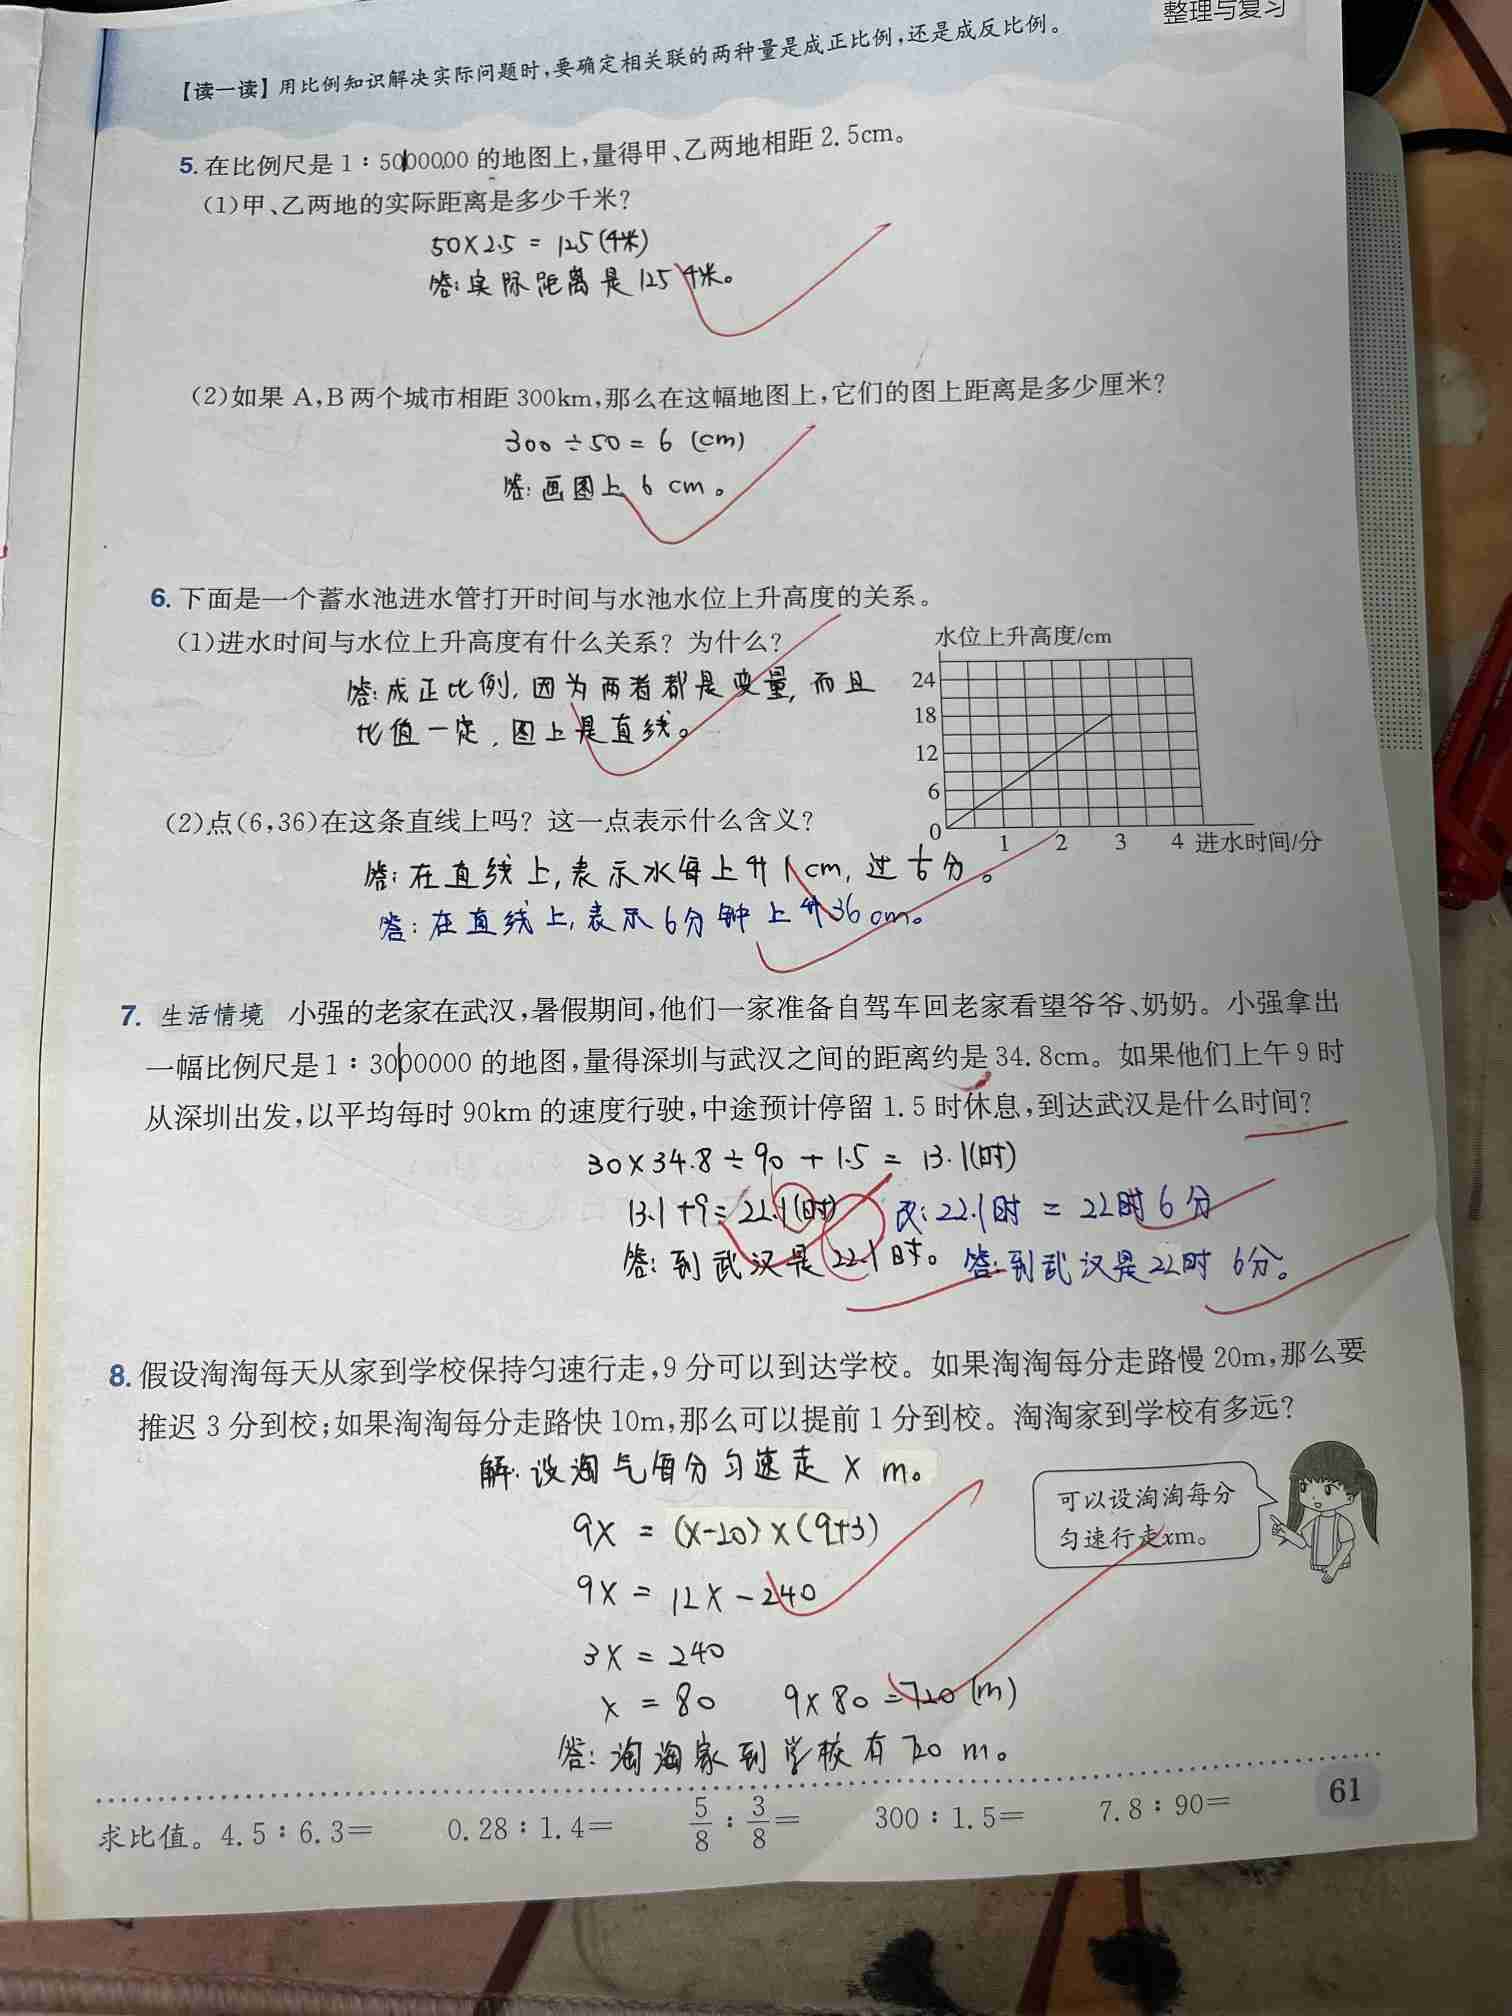 整理与复习
【读一读】用比例知识解决实际问题时,要确定相关联的两种量是成正比例,还是成反比例。
5. 在比例尺是 1∶5000000 的地图上,量得甲、乙两地相距 2.5cm。
(1)甲、乙两地的实际距离是多少千米?
50×2.5 = 125(千米)
答:实际距离是125千米。
(2)如果 A,B 两个城市相距 300km,那么在这幅地图上,它们的图上距离是多少厘米?
300÷50=6 (cm)
答:画图上 6 cm。
6. 下面是一个蓄水池进水管打开时间与水池水位上升高度的关系。
(1)进水时间与水位上升高度有什么关系?为什么?
答:成正比例,因为两者都是变量,而且
比值一定,图上是直线。
水位上升高度/cm
24
18
12
6
0
1 2 3 4 进水时间/分
(2)点(6,36)在这条直线上吗?这一点表示什么含义?
答:在直线上,表示水每上升1cm,过
分。
答:在直线上,表示6分钟上升36cm。
7. 生活情境 小强的老家在武汉,暑假期间,他们一家准备自驾车回老家看望爷爷、奶奶。小强拿出
一幅比例尺是 1∶3000000 的地图,量得深圳与武汉之间的距离约是 34.8cm。如果他们上午 9 时
从深圳出发,以平均每时 90km 的速度行驶,中途预计停留 1.5 时休息,到达武汉是什么时间?
30×34.8÷90+1.5=13.1(时)
13.1+9=22.1(时) 改:22.1时=22时6分
答:到武汉是22.1时。 答:到武汉是22时6分。
8. 假设淘淘每天从家到学校保持匀速行走,9 分可以到达学校。如果淘淘每分走路慢 20m,那么要
推迟 3 分到校;如果淘淘每分走路快 10m,那么可以提前 1 分到校。淘淘家到学校有多远?
解:设淘气每分匀速走 x m。
可以设淘淘每分
匀速行走xm。
9x = (x-20)×(9+3)
9x = 12x-240
3x = 240
x = 80 9×80=720(m)
答:淘淘家到学校有720 m。
61
求比值。4.5∶6.3= 0.28∶1.4= 5/8∶3/8= 300∶1.5= 7.8∶90=